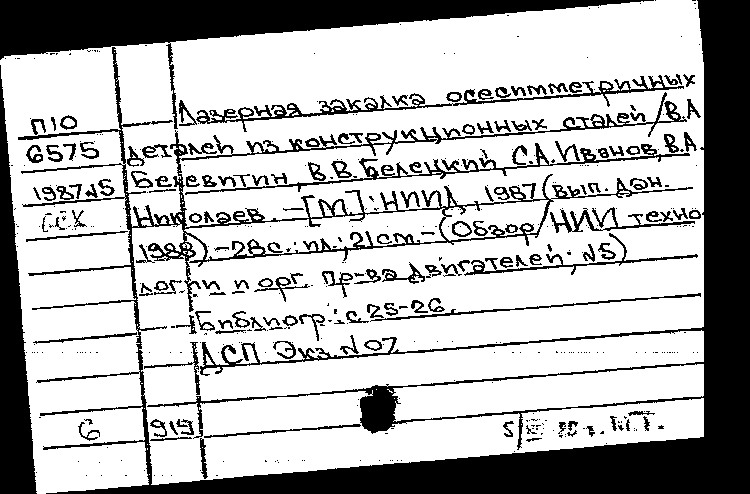 Лазерная закалка осесимметричных
П10
6575 деталей из конструкционных сталей / В.А
1987 N5 Белевитин, В.В. Белецкий, С.А. Иванов, В.А.
ССК Николаев. – [М]: НИИД, 1987 (вып. дан.
1988). – 28 с.: ил.; 21 см. – (Обзор / НИИ техно-
логии и орг. пр-ва двигателей; N5)
Библиогр.: с 25-26.
ДСП Экз. N 07
6 919